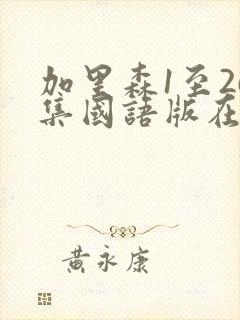 加里森1至2
集國語版在
黃永康